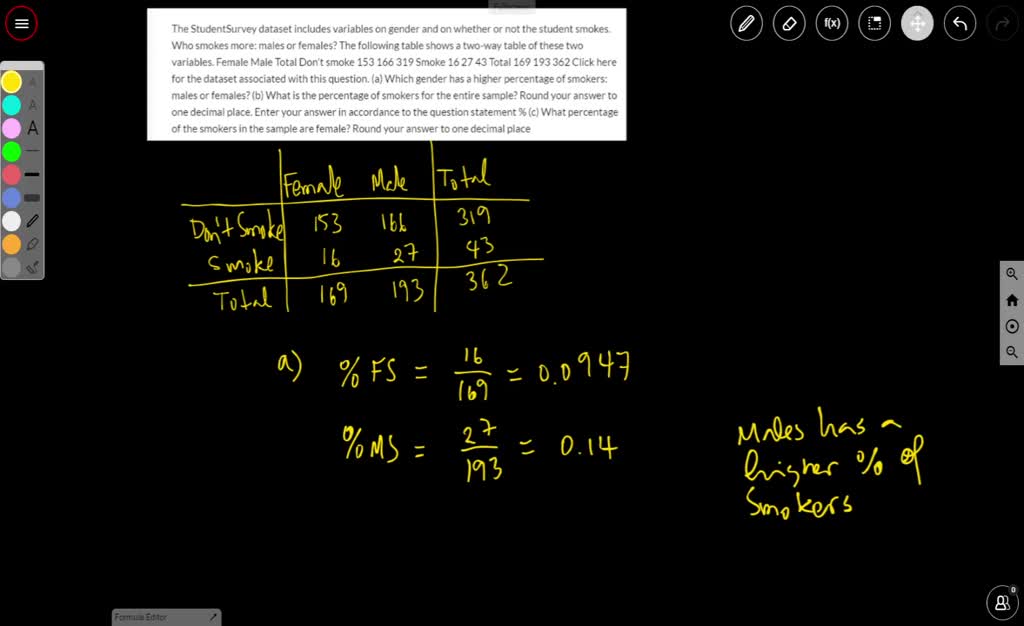 The StudentSurvey dataset includes variables on gender and on whether or not the student smokes.
Who smokes more: males or females? The following table shows a two-way table of these two
variables. Female Male Total Don't smoke 153 166 319 Smoke 16 27 43 Total 169 193 362 Click here
for the dataset associated with this question. (a) Which gender has a higher percentage of smokers:
males or females? (b) What is the percentage of smokers for the entire sample? Round your answer to
one decimal place. Enter your answer in accordance to the question statement % (c) What percentage
of the smokers in the sample are female? Round your answer to one decimal place
f(x)
A
A
A
Female Male Total
Don't Smoke 153 166 319
Smoke 16 27 43
Total 169 193 362
a) % FS = 16/169 = 0.0947
% MS = 27/193 = 0.14
Males has a
higher % of
Smokers
Formula Editor
0